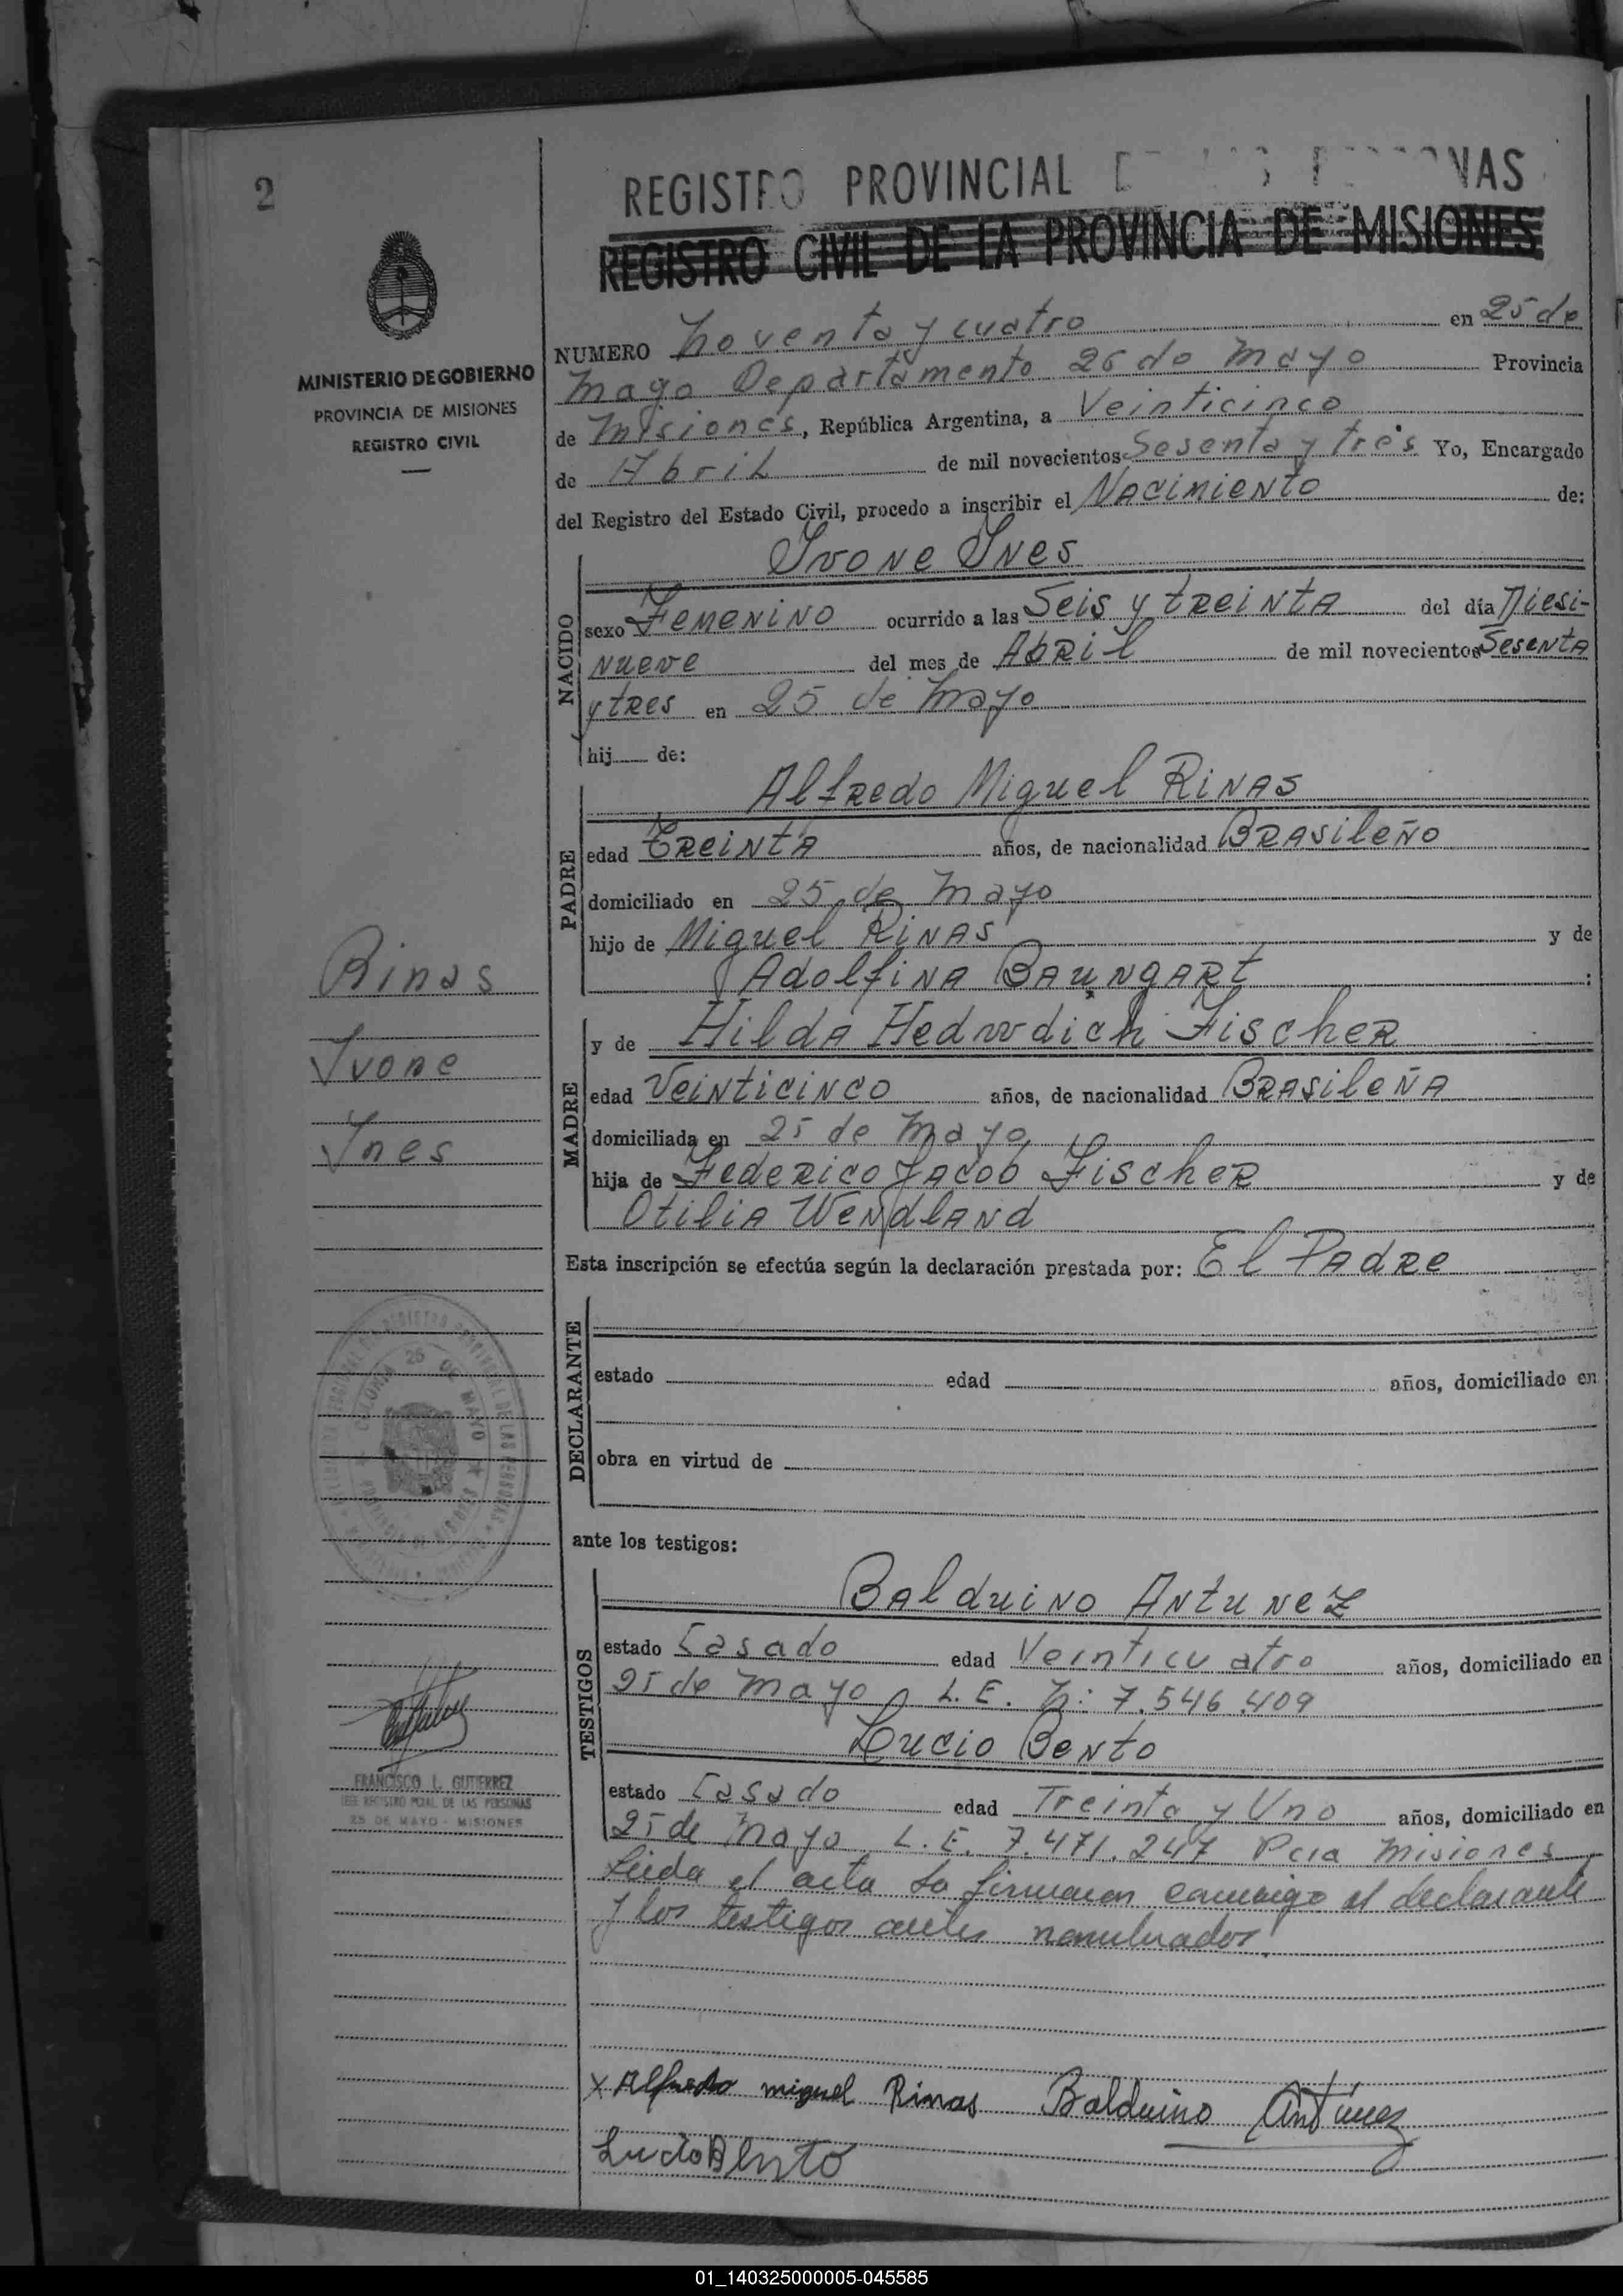 2
REGISTRO PROVINCIAL DE LAS PERSONAS
REGISTRO CIVIL DE LA PROVINCIA DE MISIONES
MINISTERIO DE GOBIERNO
PROVINCIA DE MISIONES
REGISTRO CIVIL
NUMERO noventa y cuatro en 25 de
mayo Departamento 25 de mayo Provincia
de Misiones, República Argentina, a Veinticinco
de Abril de mil novecientos Sesenta y tres Yo, Encargado
del Registro del Estado Civil, procedo a inscribir el Nacimiento de:
NACIDO
Ivone Ines
sexo Femenino ocurrido a las Seis y treinta del día Diesi-
nueve del mes de Abril de mil novecientos Sesenta
y tres en 25 de mayo
hij de:
PADRE
Alfredo Miguel Rinas
edad Treinta años, de nacionalidad Brasileño
domiciliado en 25 de mayo
hijo de Miguel Rinas y de
Adolfina Baungart;
MADRE
y de Hilda Hedwdich Fischer
edad Veinticinco años, de nacionalidad Brasileña
domiciliada en 25 de mayo
hija de Federico Jacob Fischer y de
Otilia Wendland
Rinas
Ivone
Ines
Esta inscripción se efectúa según la declaración prestada por: El Padre
DECLARANTE
estado edad años, domiciliado en
obra en virtud de
COLONIA 25 DE MAYO
ante los testigos:
TESTIGOS
Balduino Antunez
estado Casado edad Veinticuatro años, domiciliado en
25 de mayo L. E. N: 7.546.409
Lucio Bento
estado Casado edad Treinta y Uno años, domiciliado en
25 de mayo L. E. 7.471.247 Pcia Misiones
FRANCISCO L. GUTIERREZ
JEFE REGISTRO PCIAL. DE LAS PERSONAS
25 DE MAYO - MISIONES
Leida el acta la firmaron conmigo el declarante
y los testigos antes nombrados.
X Alfredo miguel Rinas Balduino Antunez
Lucio Bento
01_140325000005-045585